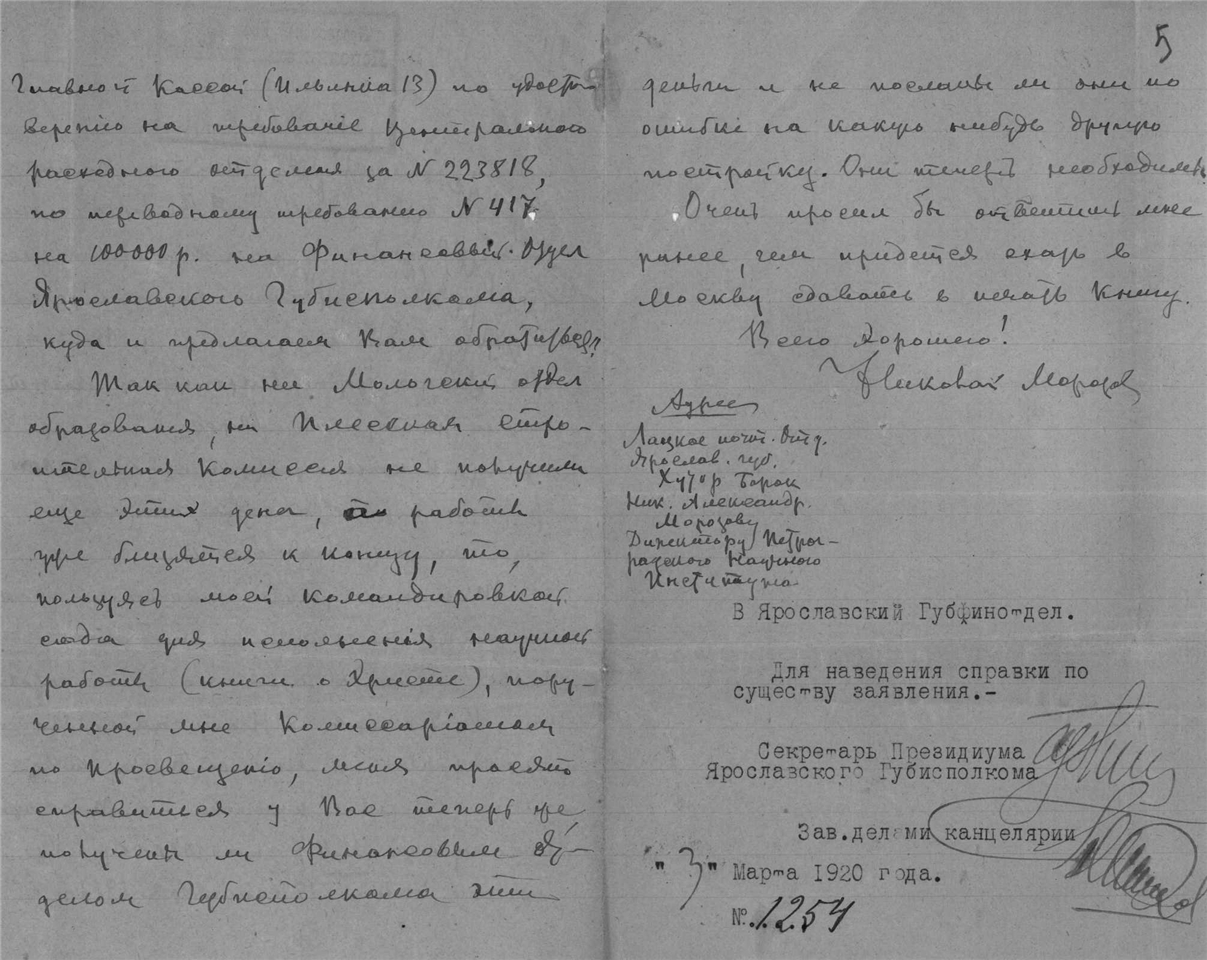 Главной Кассой (Ильинка 13) по удосто-
верению на требование Центрального
расходного отдела за N 223818,
по переводному требованию N 417
на 100000 р. на Финансовый Отдел
Ярославского Губисполкома,
куда и предлагаем Вам обратиться?
Так как ни Мологский отдел
образования, ни Строи-
тельная Комиссия не получили
еще этих денег, а работы
уже близятся к концу, то,
пользуясь моей командировкой
сюда для исполнения научной
работы (книги о Христе), пору-
ченной мне Комиссаріатом
по Просвещенію, меня просят
справиться у Вас теперь же
получены ли Финансовым От-
делом Губисполкома эти
5
деньги и не посланы ли они по
ошибкѣ на какую нибудь другую
постройку. Они теперь необходимы.
Очень просил бы ответить мне
ранее, чем придется ехать в
Москву сдавать в печать книгу.
Всего Хорошего!
Николай Морозов
Адрес
Лацкое почт. Отд.
Ярослав. губ.
Хутор Борок
Ник. Александр.
Морозову
Директору Петро-
градского Научного
Института
В Ярославский Губфинотдел.
Для наведения справки по
существу заявления.-
Секретарь Президиума
Ярославского Губисполкома
Зав.делами канцелярии
"3" Марта 1920 года.
№.1254